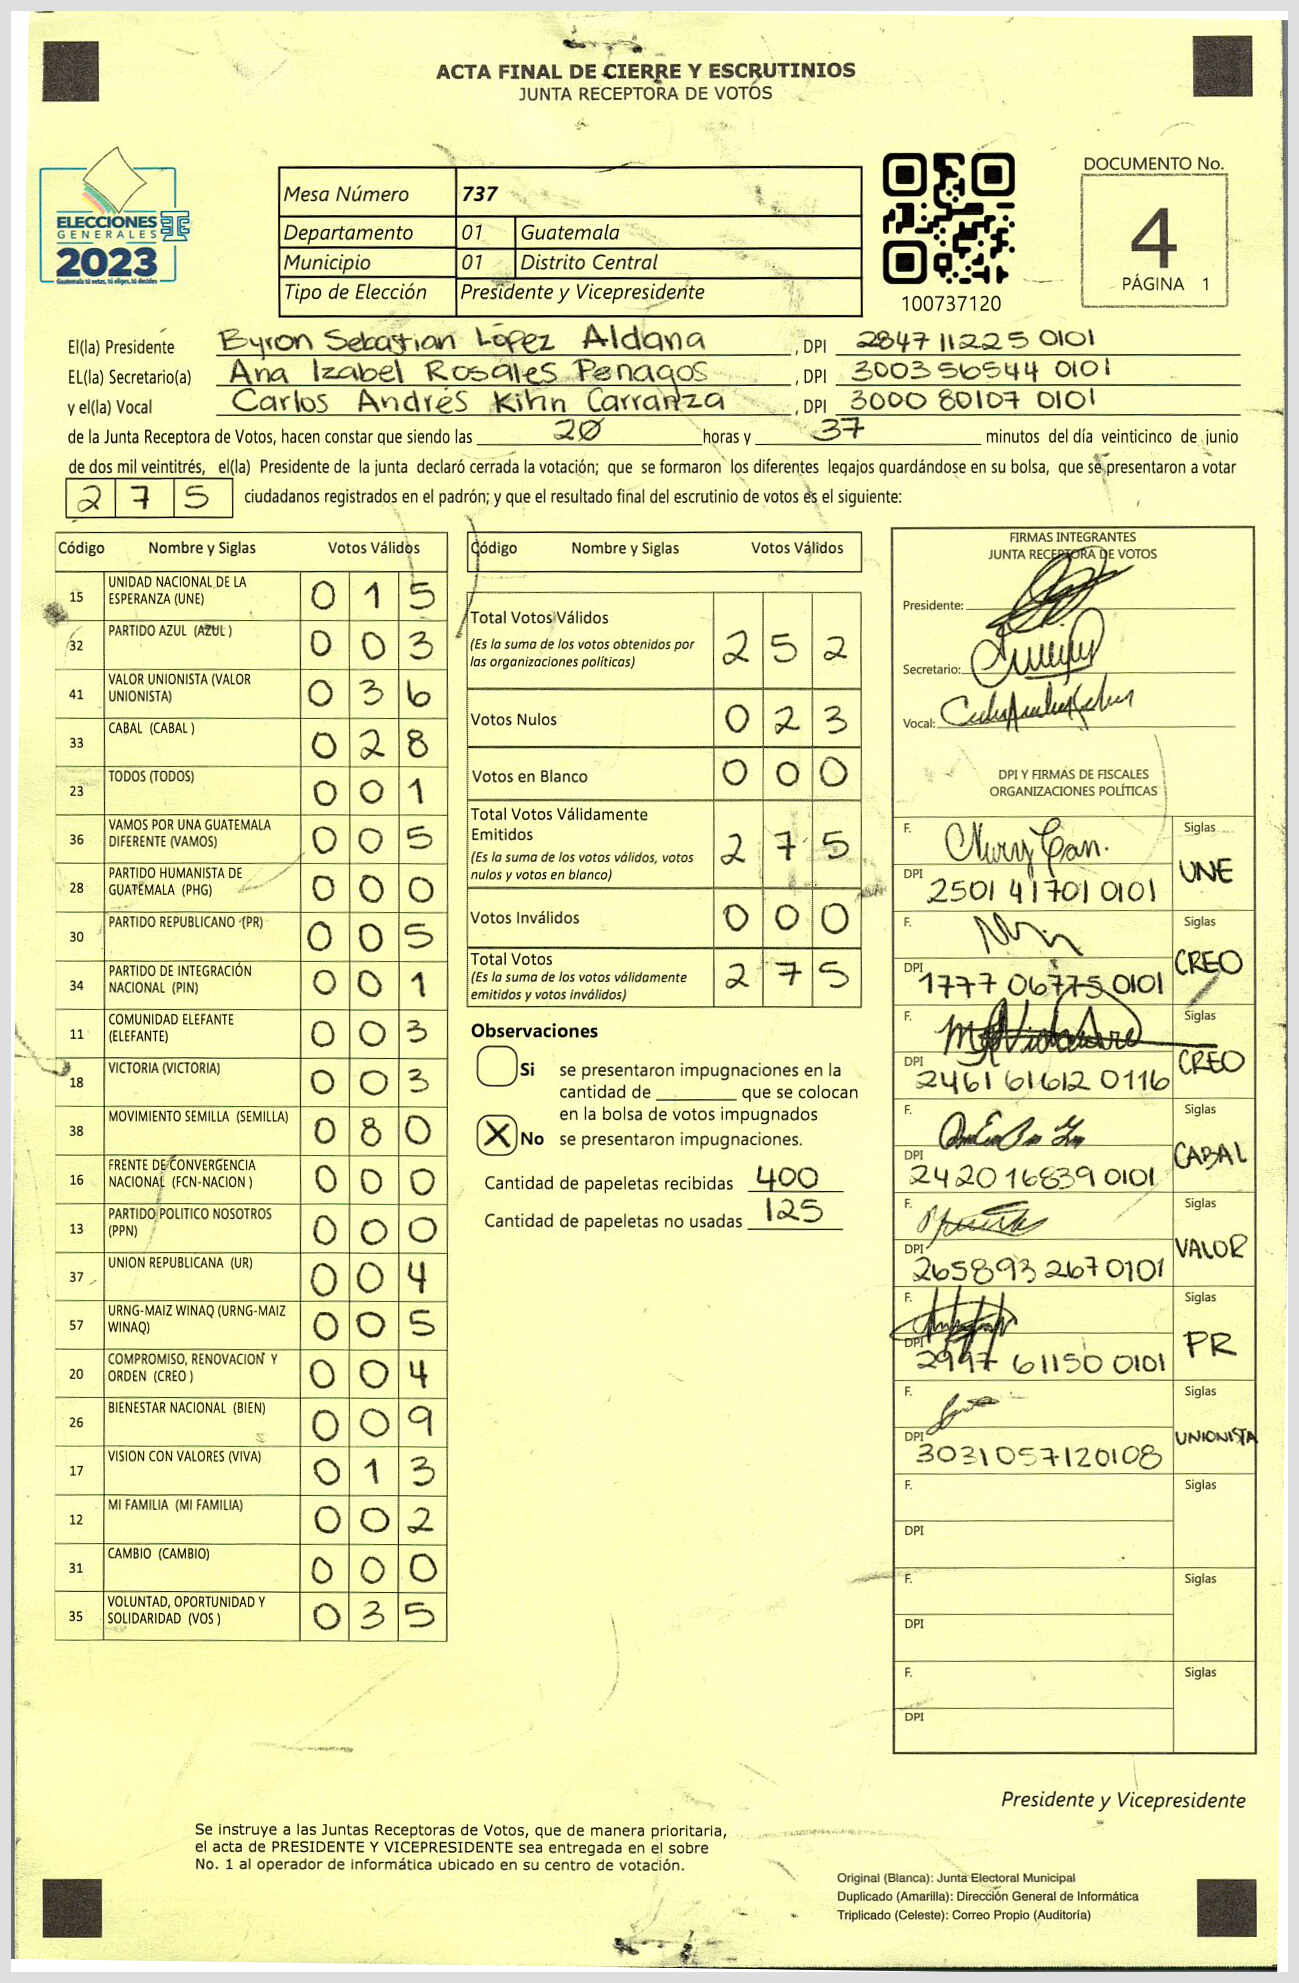 ACTA FINAL DE CIERRE Y ESCRUTINIOS
JUNTA RECEPTORA DE VOTOS
ELECCIONES
GENERALES
2023
Guatemala tú votas, tú eliges, tú decides
Mesa Número 737
Departamento 01 Guatemala
Municipio 01 Distrito Central
Tipo de Elección Presidente y Vicepresidente
100737120
DOCUMENTO No.
4
PÁGINA 1
El(la) Presidente Byron Sebastian López Aldana , DPI 2847 11225 0101
EL(la) Secretario(a) Ana Izabel Rosales Penagos , DPI 3003 56544 0101
y el(la) Vocal Carlos Andrés Kihn Carranza , DPI 3000 80107 0101
de la Junta Receptora de Votos, hacen constar que siendo las 20 horas y 37 minutos del día veinticinco de junio
de dos mil veintitrés, el(la) Presidente de la junta declaró cerrada la votación; que se formaron los diferentes legajos guardándose en su bolsa, que se presentaron a votar
2 7 5 ciudadanos registrados en el padrón; y que el resultado final del escrutinio de votos es el siguiente:
Código Nombre y Siglas Votos Válidos
15 UNIDAD NACIONAL DE LA ESPERANZA (UNE) 0 1 5
32 PARTIDO AZUL (AZUL ) 0 0 3
41 VALOR UNIONISTA (VALOR UNIONISTA) 0 3 6
33 CABAL (CABAL ) 0 2 8
23 TODOS (TODOS) 0 0 1
36 VAMOS POR UNA GUATEMALA DIFERENTE (VAMOS) 0 0 5
28 PARTIDO HUMANISTA DE GUATEMALA (PHG) 0 0 0
30 PARTIDO REPUBLICANO (PR) 0 0 5
34 PARTIDO DE INTEGRACIÓN NACIONAL (PIN) 0 0 1
11 COMUNIDAD ELEFANTE (ELEFANTE) 0 0 3
18 VICTORIA (VICTORIA) 0 0 3
38 MOVIMIENTO SEMILLA (SEMILLA) 0 8 0
16 FRENTE DE CONVERGENCIA NACIONAL (FCN-NACION ) 0 0 0
13 PARTIDO POLITICO NOSOTROS (PPN) 0 0 0
37 UNION REPUBLICANA (UR) 0 0 4
57 URNG-MAIZ WINAQ (URNG-MAIZ WINAQ) 0 0 5
20 COMPROMISO, RENOVACION Y ORDEN (CREO ) 0 0 4
26 BIENESTAR NACIONAL (BIEN) 0 0 9
17 VISION CON VALORES (VIVA) 0 1 3
12 MI FAMILIA (MI FAMILIA) 0 0 2
31 CAMBIO (CAMBIO) 0 0 0
35 VOLUNTAD, OPORTUNIDAD Y SOLIDARIDAD (VOS ) 0 3 5
Código Nombre y Siglas Votos Válidos
Total Votos Válidos 2 5 2
(Es la suma de los votos obtenidos por
las organizaciones políticas)
Votos Nulos 0 2 3
Votos en Blanco 0 0 0
Total Votos Válidamente
Emitidos 2 7 5
(Es la suma de los votos válidos, votos
nulos y votos en blanco)
Votos Inválidos 0 0 0
Total Votos 2 7 5
(Es la suma de los votos válidamente
emitidos y votos inválidos)
Observaciones
Si se presentaron impugnaciones en la
cantidad de ________ que se colocan
en la bolsa de votos impugnados
X No se presentaron impugnaciones.
Cantidad de papeletas recibidas 400
Cantidad de papeletas no usadas 125
FIRMAS INTEGRANTES
JUNTA RECEPTORA DE VOTOS
Presidente:
Secretario:
Vocal:
DPI Y FIRMAS DE FISCALES
ORGANIZACIONES POLÍTICAS
F. Siglas
DPI 2501 41701 0101 UNE
F. Siglas
DPI 1777 06775 0101 CREO
F. Siglas
DPI 2461 61612 0116 CREO
F. Siglas
DPI 2420 16839 0101 CABAL
F. Siglas
DPI 265893 267 0101 VALOR
F. Siglas
DPI 2997 61150 0101 PR
F. Siglas
DPI 3031057120108 UNIONISTA
F. Siglas
DPI
F. Siglas
DPI
F. Siglas
DPI
Presidente y Vicepresidente
Se instruye a las Juntas Receptoras de Votos, que de manera prioritaria,
el acta de PRESIDENTE Y VICEPRESIDENTE sea entregada en el sobre
No. 1 al operador de informática ubicado en su centro de votación.
Original (Blanca): Junta Electoral Municipal
Duplicado (Amarilla): Dirección General de Informática
Triplicado (Celeste): Correo Propio (Auditoría)